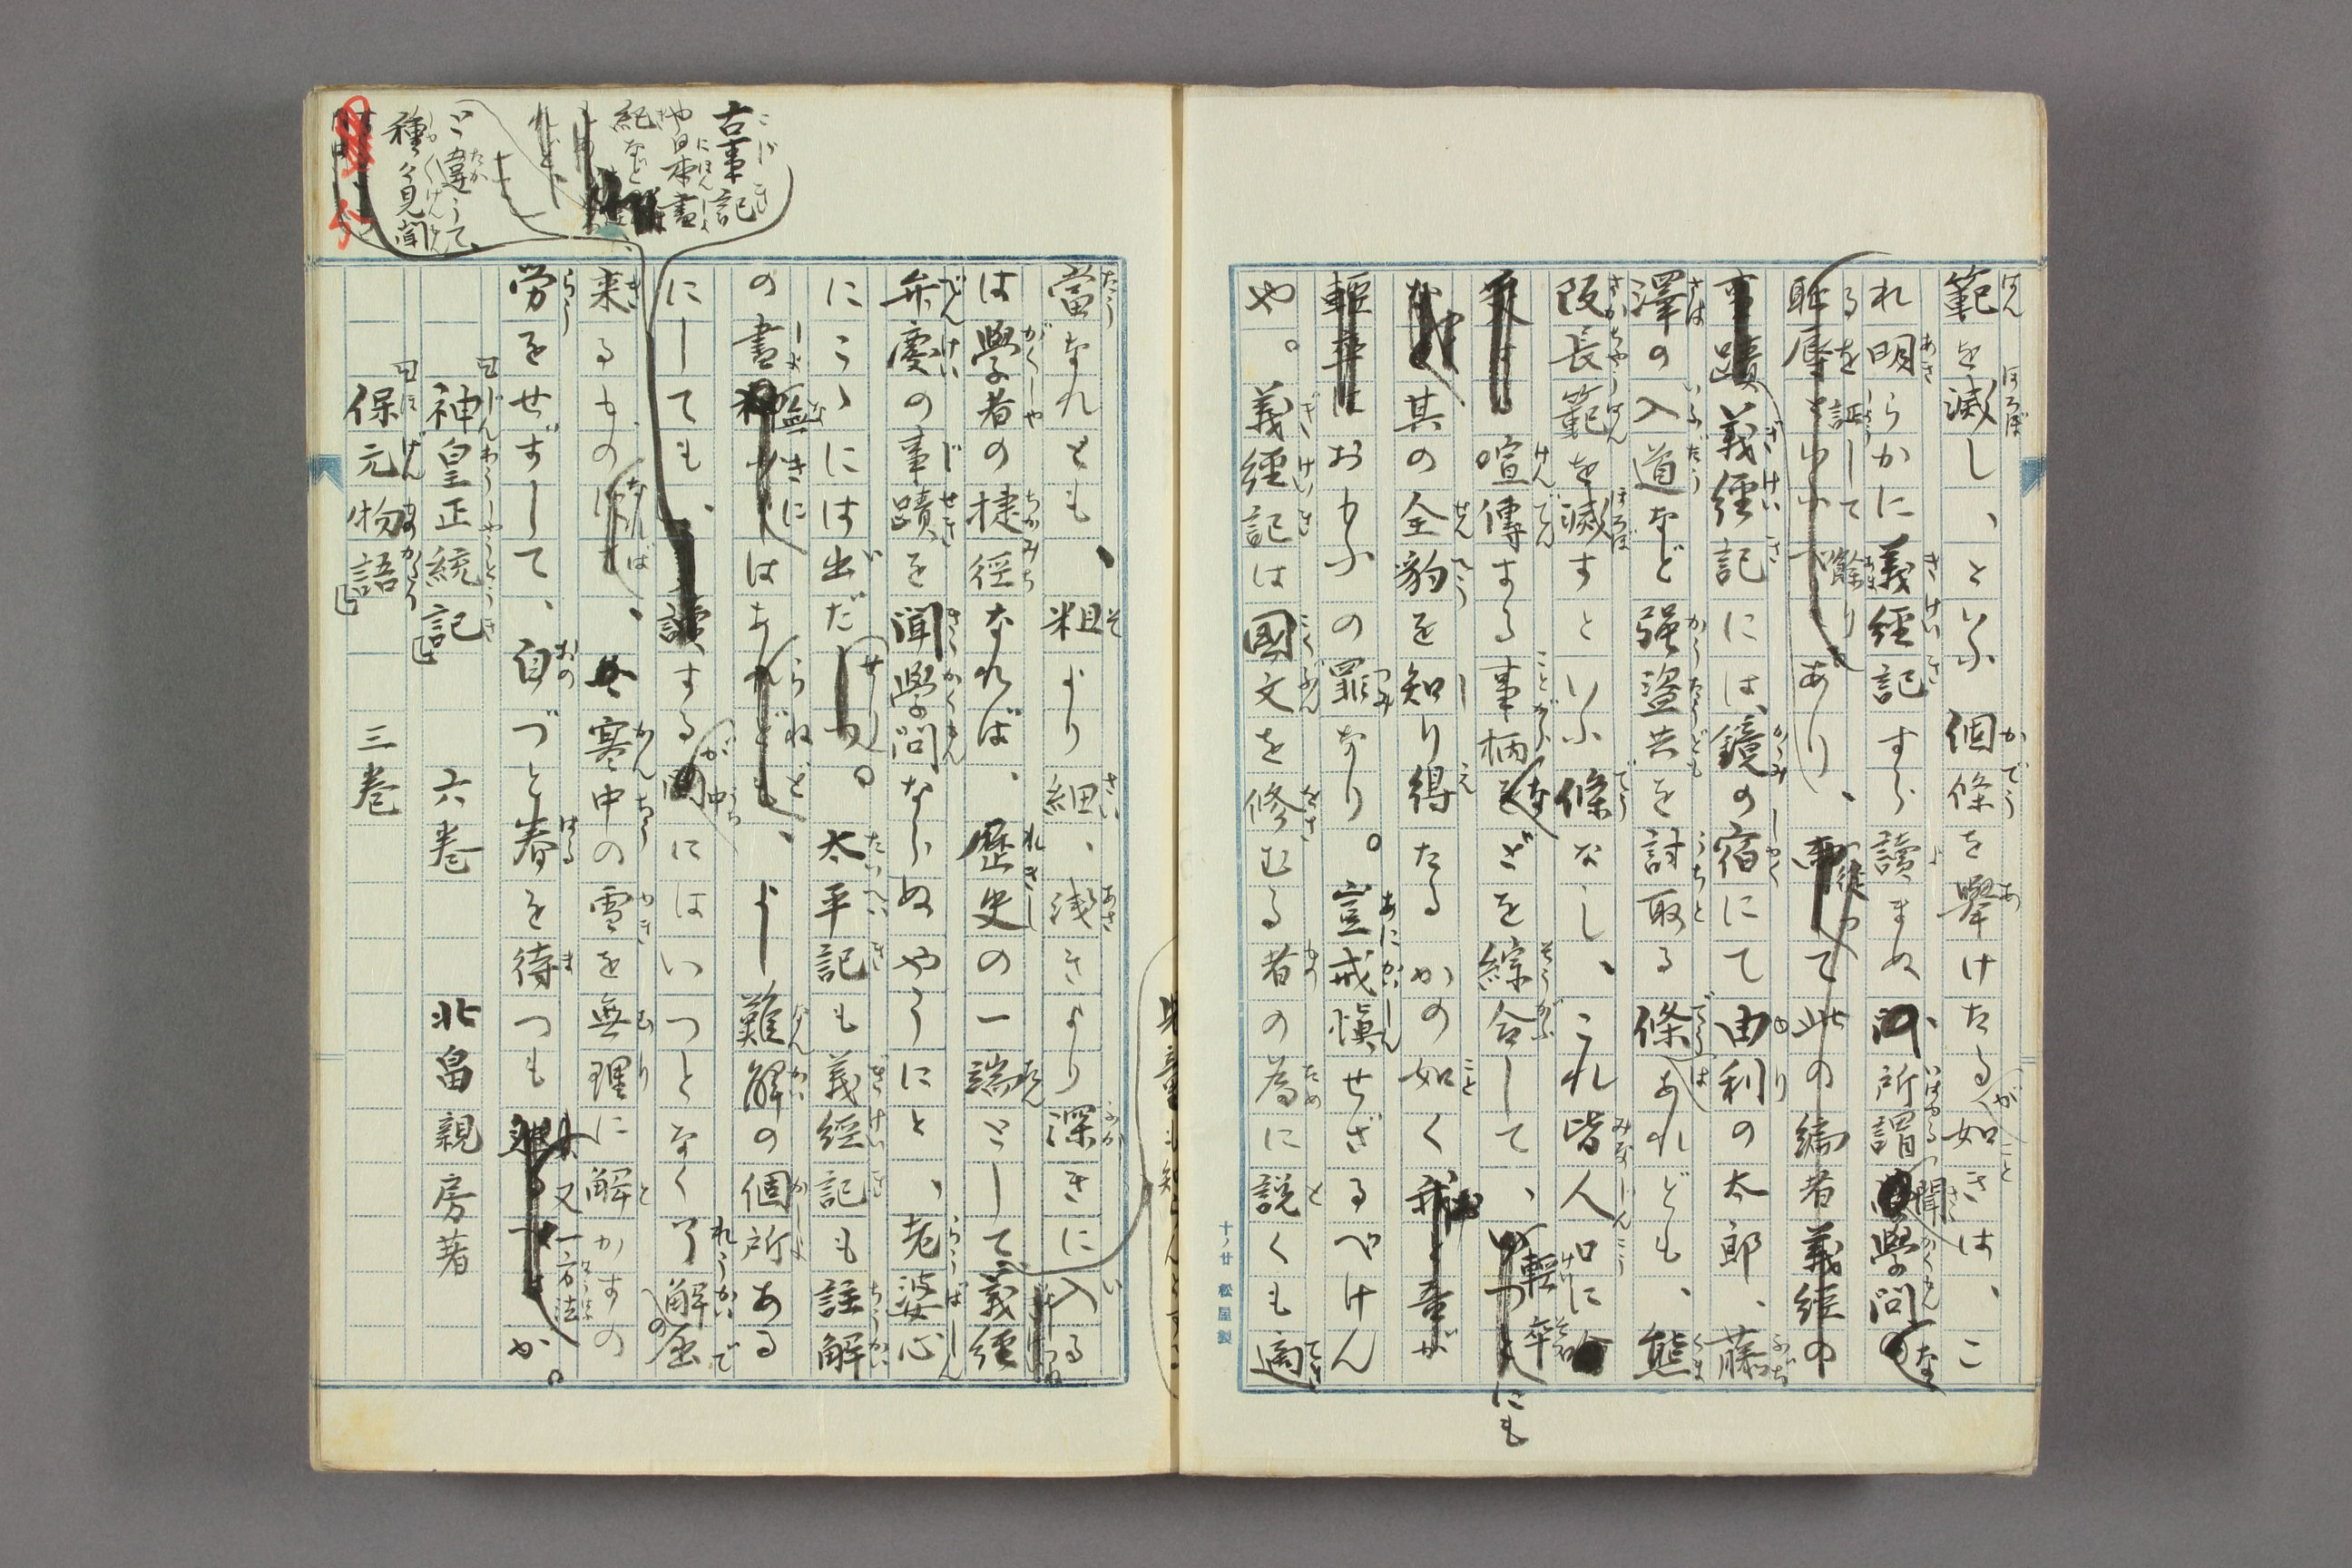 範を滅し、といふ個條を擧けたるが如きは、こ
れ明らかに義經記すら讀まぬ所謂聞學問な
るを証して餘りあり、從つて此の編者義經の
義經記には、鏡の宿にて由利の太郎、藤
澤の入道など强盗共を討取る條はあれども、熊
阪長範を滅すといふ條なし、これ皆人口に
喧傳する事柄なぞを綜合して、輕卒にも
其の全豹を知り得たるかの如く
おもふの罪なり。豈戒愼せざるべけん
や。義經記は國文を修むる者の為に説くも適
十ノ廿 松屋製
當なれとも、粗より細、浅きより深きに入る
は學者の捷徑なれば、歷史の一端として義經
弁慶の事蹟を聞學問ならぬやうにと、老婆心
にこゝには出だせり。太平記も義經記も註解
の書無きにはあらねど、よし難解の個所ある
にしても、
古事記
や日本書
紀など
と違うて、
種々見聞
する中にはいつとなく了解の出
来るものなれば、寒中の雪を無理に解かすの
労をせずして、自づと春を待つも又一方法か。
「神皇正統記」 六巻 北畠親房著
「保元物語」 三巻